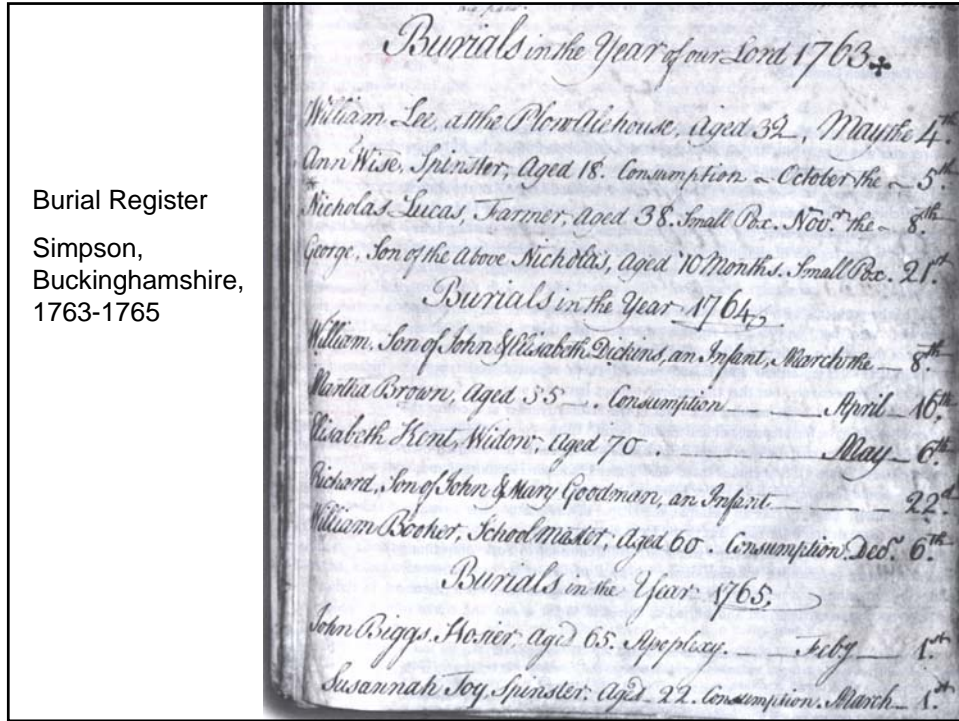 Burial Register
Simpson,
Buckinghamshire,
1763-1765
Burials in the Year of our Lord 1763
William Lee, at the Plow Alehouse, Aged 32, May the 4th
Ann Wise, Spinster, Aged 18. Consumption October the 5th
Nicholas Lucas, Farmer, aged 38. Small Pox. Novr. the 8th
George, Son of the Above Nicholas, aged 10 Months. Small Pox. 21st
Burials in the Year 1764
William, Son of John & Elisabeth Dickins, an Infant, March the 8th
Martha Brown, Aged 35. Consumption April 16th
Elisabeth Kent, Widow, Aged 70. May 6th
Richard, Son of John & Mary Goodman, an Infant 22d
William Booker, Schoolmaster, aged 60. Consumption. Decr. 6th
Burials in the Year 1765
John Biggs, Hosier, aged 65. Apoplexy. Feby 1st
Susannah Joy, Spinster. Aged 22. Consumption. March 1st